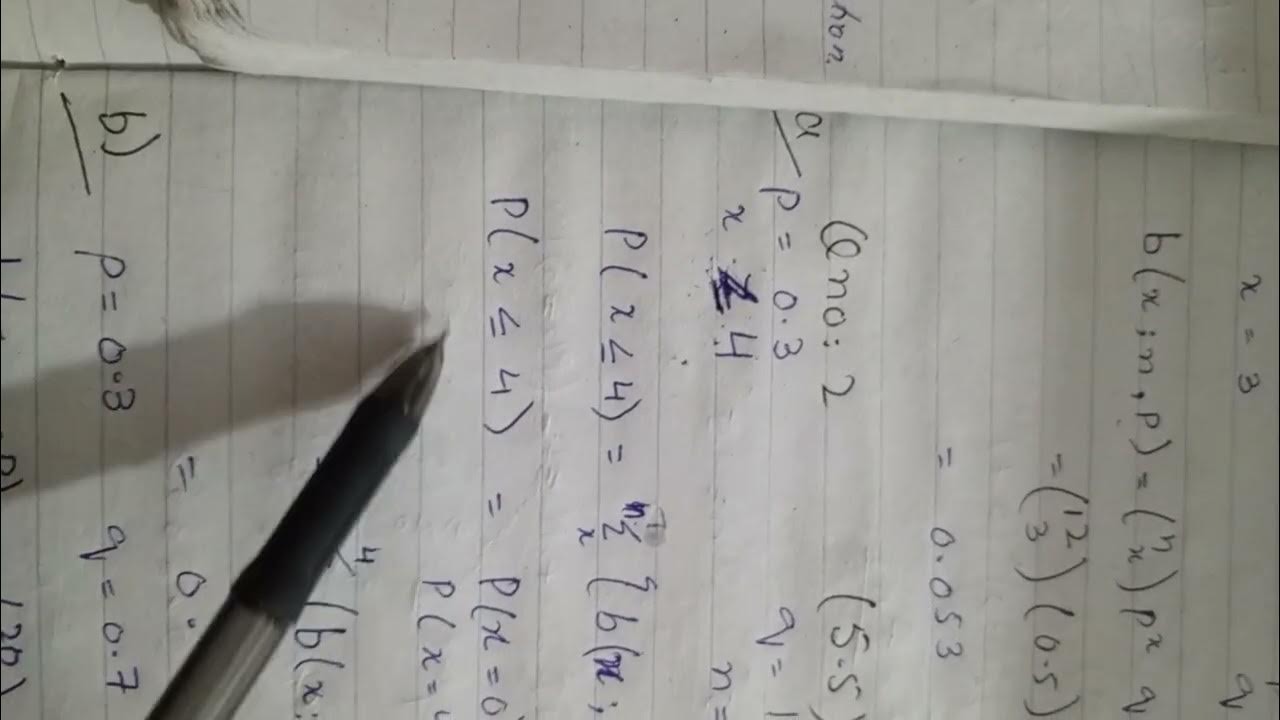 hon
x = 3 q
b(x; n, p) = (n x) p^x q
= (12 3) (0.5)
= 0.053
Qno: 2 (5.5)
a p = 0.3 q = 1
x ≤ 4 n =
P(x ≤ 4) = Σ {b(x;
P(x ≤ 4) = P(x = 0)
P(x =
4 (b(x;
= 0.
b) p = 0.3 q = 0.7